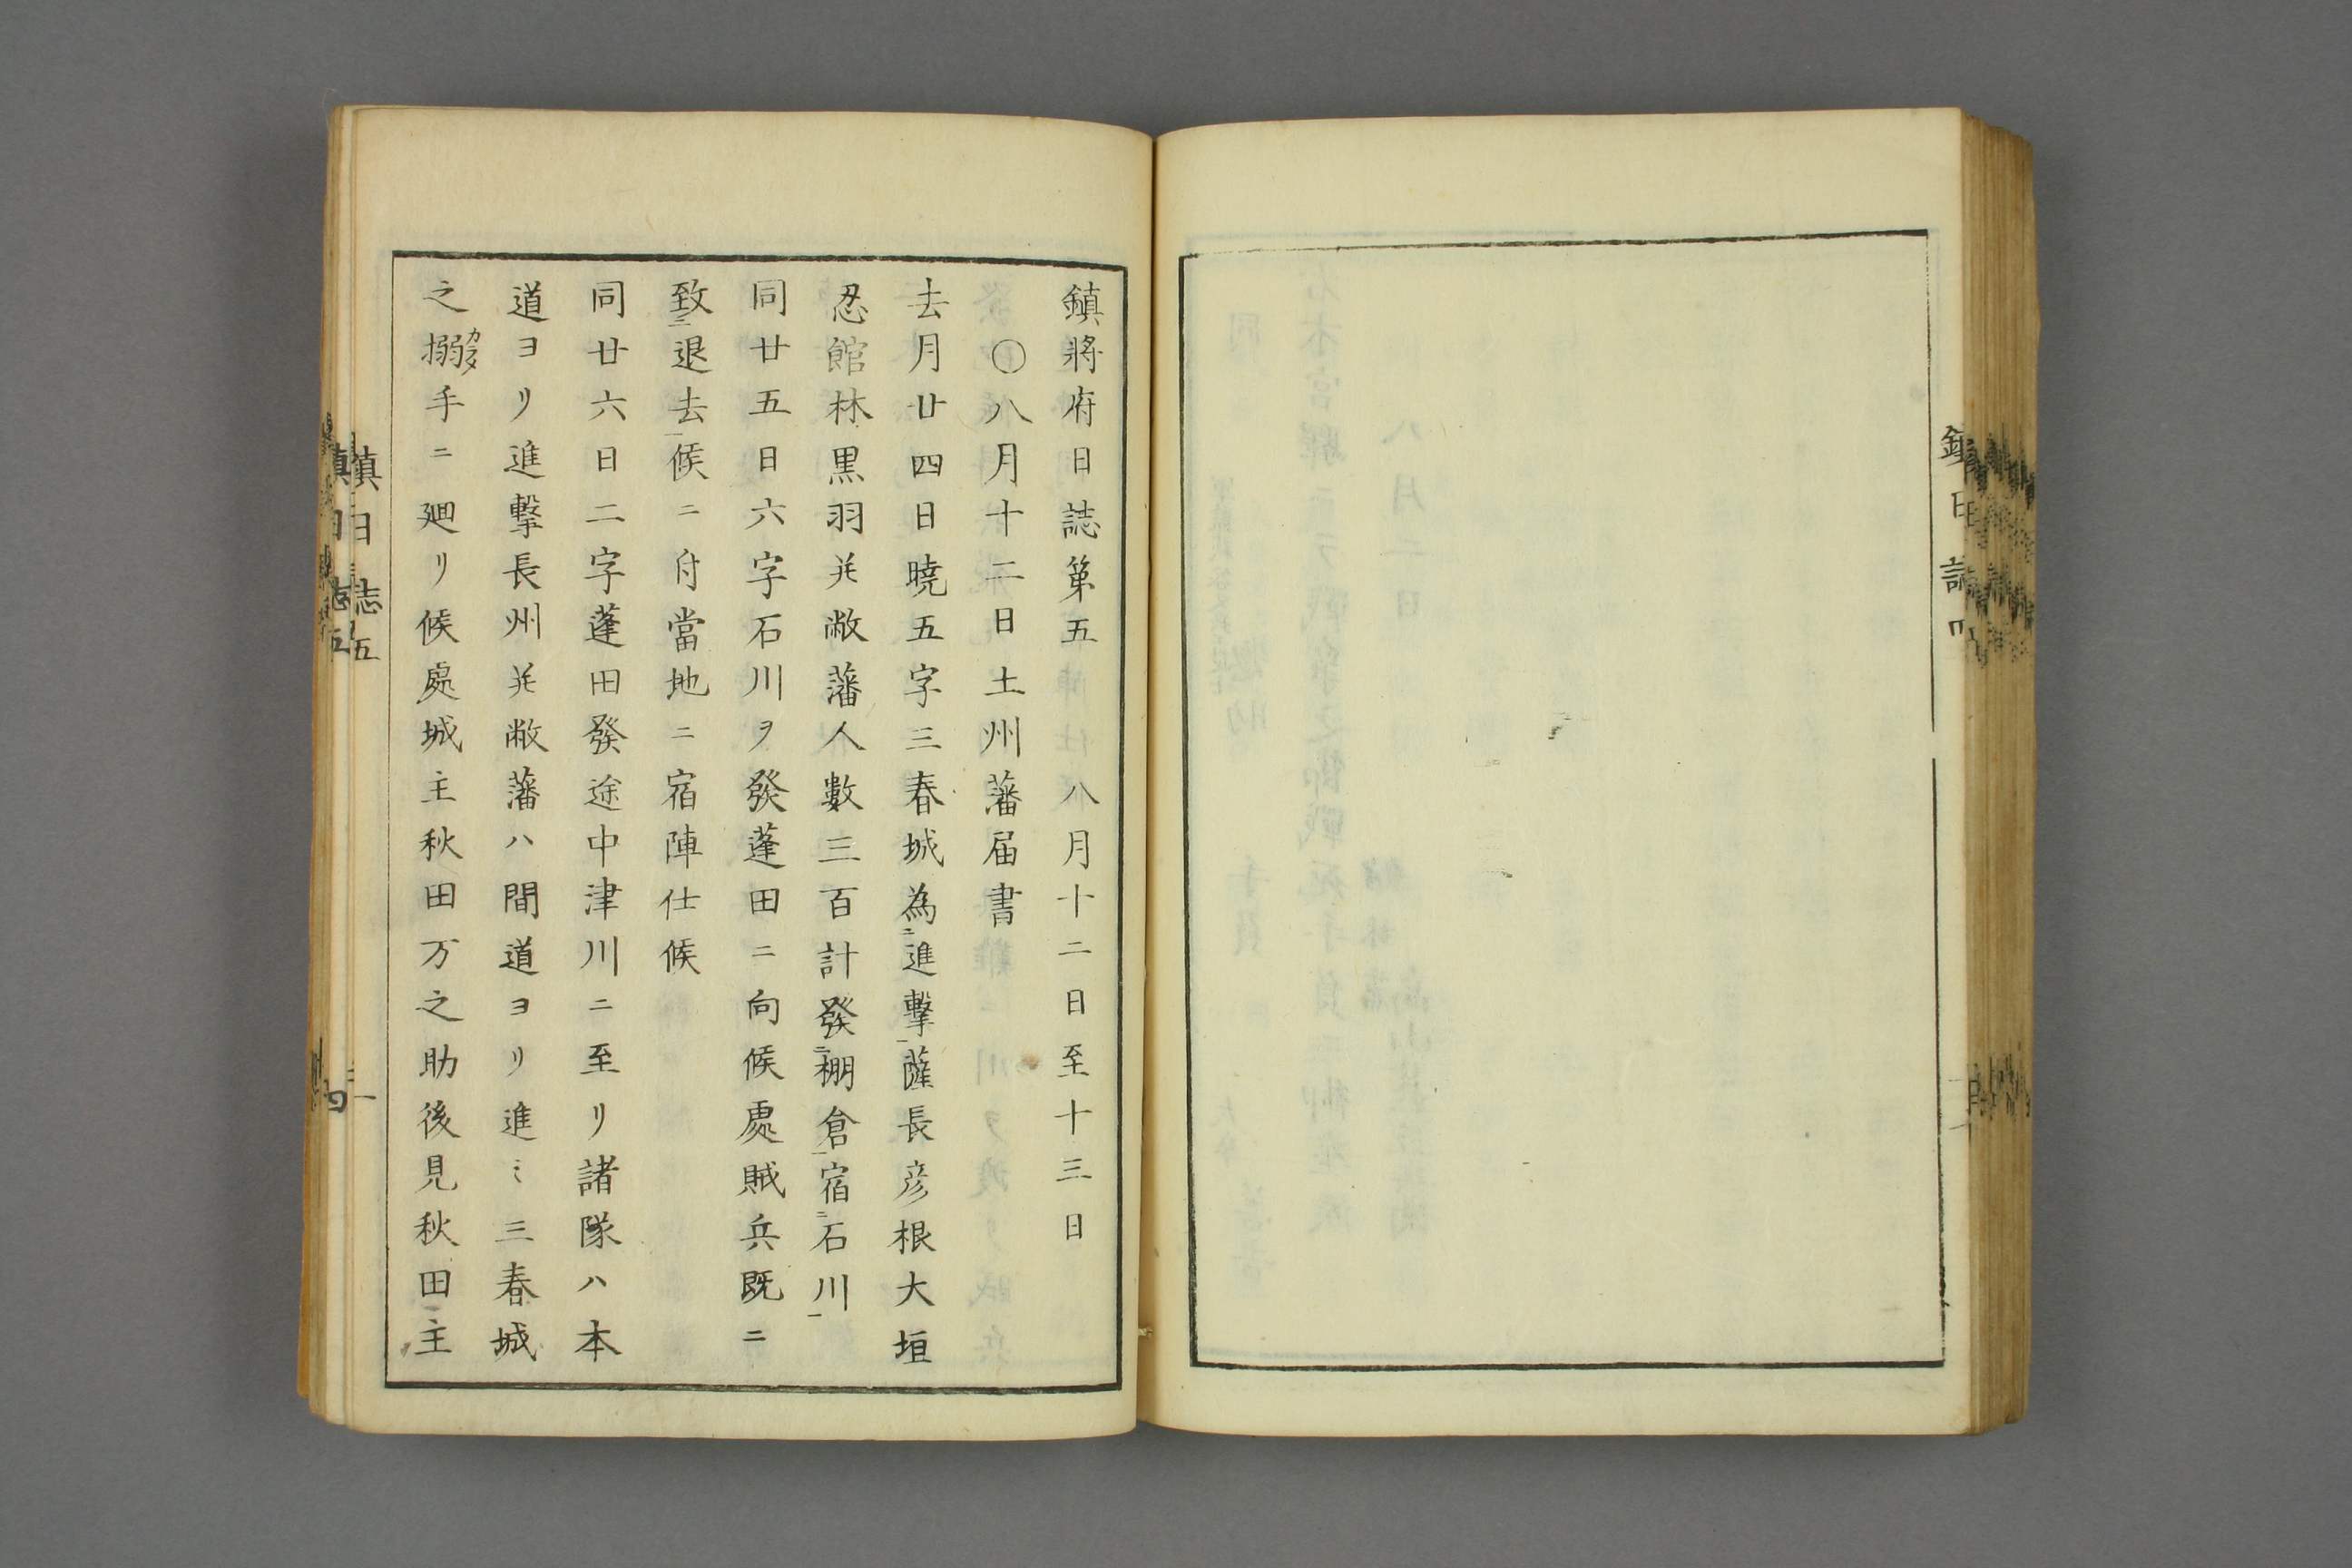 鎮將府日誌第五　八月十二日至十三日
〇八月十二日土州藩届書
去月廿四日曉五字三春城為ニ進擊一薩長彦根大垣
忍館林黒羽并敝藩人數三百計發ニ棚倉一宿ニ石川一
同廿五日六字石川ヲ發蓬田ニ向候處賊兵既ニ
致ニ退去一候ニ付當地ニ宿陣仕候
同廿六日二字蓬田發途中津川ニ至リ諸隊ハ本
道ヨリ進擊長州并敝藩ハ間道ヨリ進ミ三春城
之搦カラメ手ニ廻リ候處城主秋田万之助後見秋田主
鎮日誌五
一